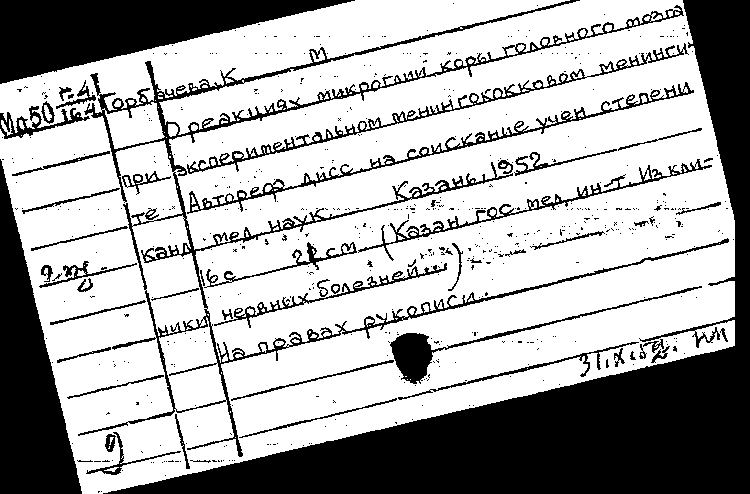 Мд50 г.4
164
Горбачева, К. М
О реакциях микроглии коры головного мозга
при экспериментальном менингококковом менинги-
те Автореф дисс. на соискание учен степени
канд. мед. наук. Казань, 1952.
16 с 21 см. (Казан. гос. мед. ин-т. Из кли-
ники нервных болезней...)
На правах рукописи.
31.X.52. нм